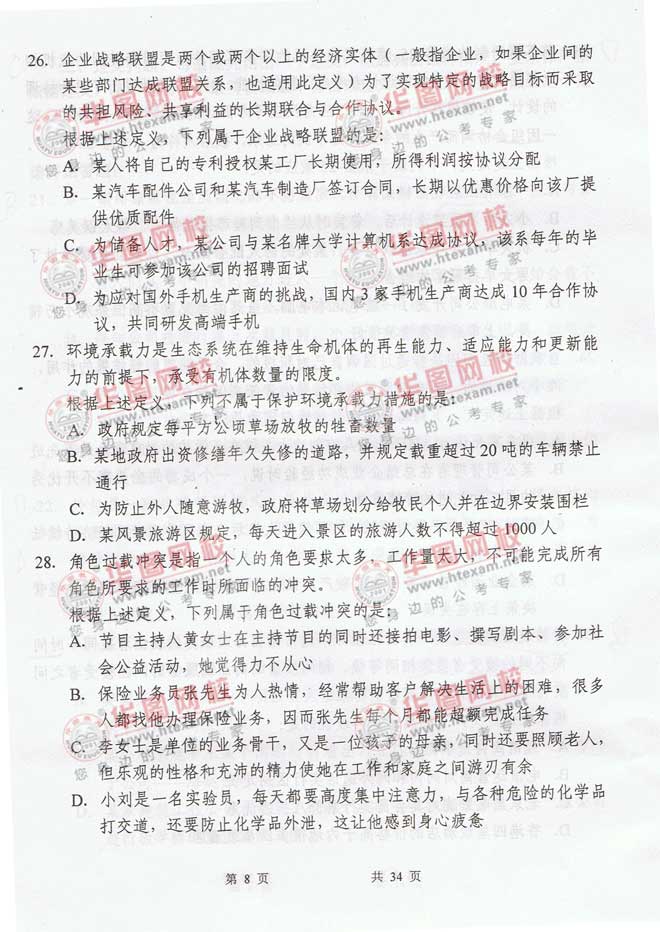 26. 企业战略联盟是两个或两个以上的经济实体（一般指企业，如果企业间的
某些部门达成联盟关系，也适用此定义）为了实现特定的战略目标而采取
的共担风险、共享利益的长期联合与合作协议。
根据上述定义，下列属于企业战略联盟的是：
A. 某人将自己的专利授权某工厂长期使用，所得利润按协议分配
B. 某汽车配件公司和某汽车制造厂签订合同，长期以优惠价格向该厂提
供优质配件
C. 为储备人才，某公司与某名牌大学计算机系达成协议，该系每年的毕
业生可参加该公司的招聘面试
D. 为应对国外手机生产商的挑战，国内3家手机生产商达成10年合作协
议，共同研发高端手机
27. 环境承载力是生态系统在维持生命机体的再生能力、适应能力和更新能
力的前提下，承受有机体数量的限度。
根据上述定义，下列不属于保护环境承载力措施的是：
A. 政府规定每平方公顷草场放牧的牲畜数量
B. 某地政府出资修缮年久失修的道路，并规定载重超过20吨的车辆禁止
通行
C. 为防止外人随意游牧，政府将草场划分给牧民个人并在边界安装围栏
D. 某风景旅游区规定，每天进入景区的旅游人数不得超过1000人
28. 角色过载冲突是指一个人的角色要求太多，工作量太大，不可能完成所有
角色所要求的工作时所面临的冲突。
根据上述定义，下列属于角色过载冲突的是：
A. 节目主持人黄女士在主持节目的同时还接拍电影、撰写剧本、参加社
会公益活动，她觉得力不从心
B. 保险业务员张先生为人热情，经常帮助客户解决生活上的困难，很多
人都找他办理保险业务，因而张先生每个月都能超额完成任务
C. 李女士是单位的业务骨干，又是一位孩子的母亲，同时还要照顾老人，
但乐观的性格和充沛的精力使她在工作和家庭之间游刃有余
D. 小刘是一名实验员，每天都要高度集中注意力，与各种危险的化学品
打交道，还要防止化学品外泄，这让他感到身心疲惫
第 8 页 共 34 页
华图网校
www.htexam.net
您身边的公考专家
华图网校
www.htexam.net
您身边的公考专家
华图网校
www.htexam.net
您身边的公考专家
华图网校
www.htexam.net
您身边的公考专家
华图网校
www.htexam.net
您身边的公考专家
华图网校
www.htexam.net
您身边的公考专家
华图网校
www.htexam.net
您身边的公考专家
华图网校
www.htexam.net
您身边的公考专家
华图网校
www.htexam.net
您身边的公考专家
华图网校
www.htexam.net
您身边的公考专家